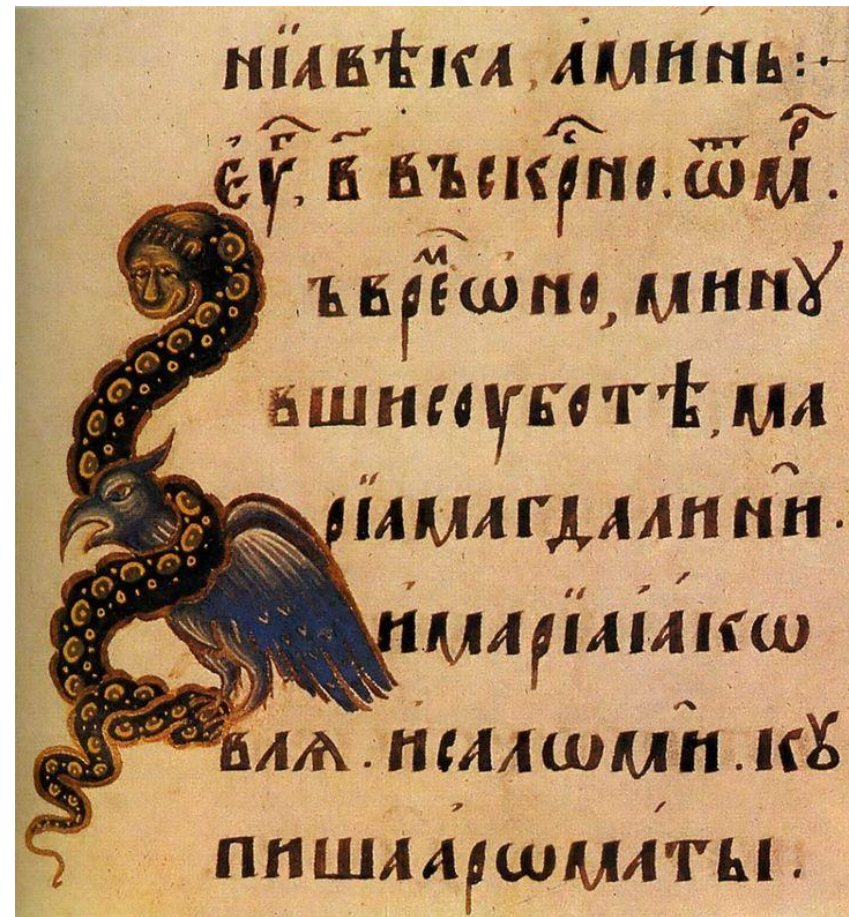 нїꙗвѣка, а́минь:·
є҆ѵ҃ⷢ, в҃ въскрⷭ҇но. ѿмрⷦ.
ъврⷨєѡно, минꙋ
вшисоуботѣ, ма
рїꙗмагдалини̑.
и҆марїꙗіа́кѡ
влѧ. исалѡми̑. кꙋ
пишаарѡма́ты.